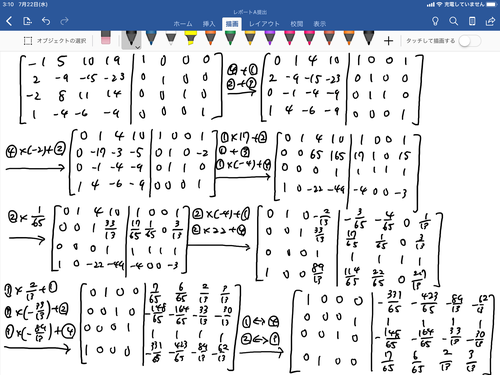 3:10 7月22日(水)
レポートA提出
充電していません
ホーム 挿入 描画 レイアウト 校閲 表示
オブジェクトの選択
タッチして描画する
-1 5 10 19 | 1 0 0 0
2 -9 -15 -23 | 0 1 0 0
-2 8 11 14 | 0 0 1 0
1 -4 -6 -9 | 0 0 0 1
④+①
②+③
0 1 4 10 | 1 0 0 1
2 -9 -15 -23 | 0 1 0 0
0 -1 -4 -9 | 0 1 1 0
1 4 -6 -9 | 0 0 0 1
④×(-2)+②
0 1 4 10 | 1 0 0 1
0 -17 -3 -5 | 0 1 0 -2
0 -1 -4 -9 | 0 1 1 0
1 4 -6 -9 | 0 0 0 1
①×17+②
①+③
①×(-4)+④
0 1 4 10 | 1 0 0 1
0 0 65 165 | 17 1 0 15
0 0 0 1 | 1 1 1 1
1 0 -22 -49 | -4 0 0 -3
②×1/65
0 1 4 10 | 1 0 0 1
0 0 1 33/13 | 17/65 1/65 0 3/13
0 0 0 1 | 1 1 1 1
1 0 -22 -49 | -4 0 0 -3
②×(-4)+①
②×22+④
0 1 0 -2/13 | -3/65 -4/65 0 1/13
0 0 1 33/13 | 17/65 1/65 0 3/13
0 0 0 1 | 1 1 1 1
1 0 0 89/13 | 114/65 22/65 0 27/13
③×2/13+①
③×(-33/13)+②
③×(-89/13)+④
0 1 0 0 | 7/65 6/65 2/13 3/13
0 0 1 0 | -148/65 -164/65 -33/13 -30/13
0 0 0 1 | 1 1 1 1
1 0 0 0 | -331/65 -423/65 -89/13 -62/13
①↔④
②↔③
1 0 0 0 | -331/65 -423/65 -89/13 -62/13
0 0 0 1 | 1 1 1 1
0 0 1 0 | -148/65 -164/65 -33/13 -30/13
0 1 0 0 | 7/65 6/65 2/13 3/13